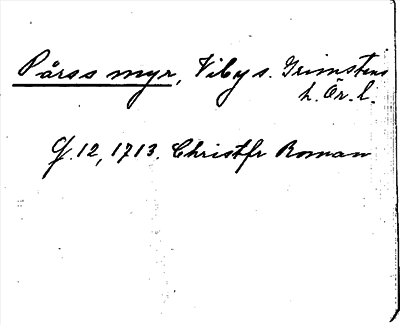 Pårss myr, Viby s. Grimstens
h. Ör. l.
G. 12, 1713. Christfr Roman